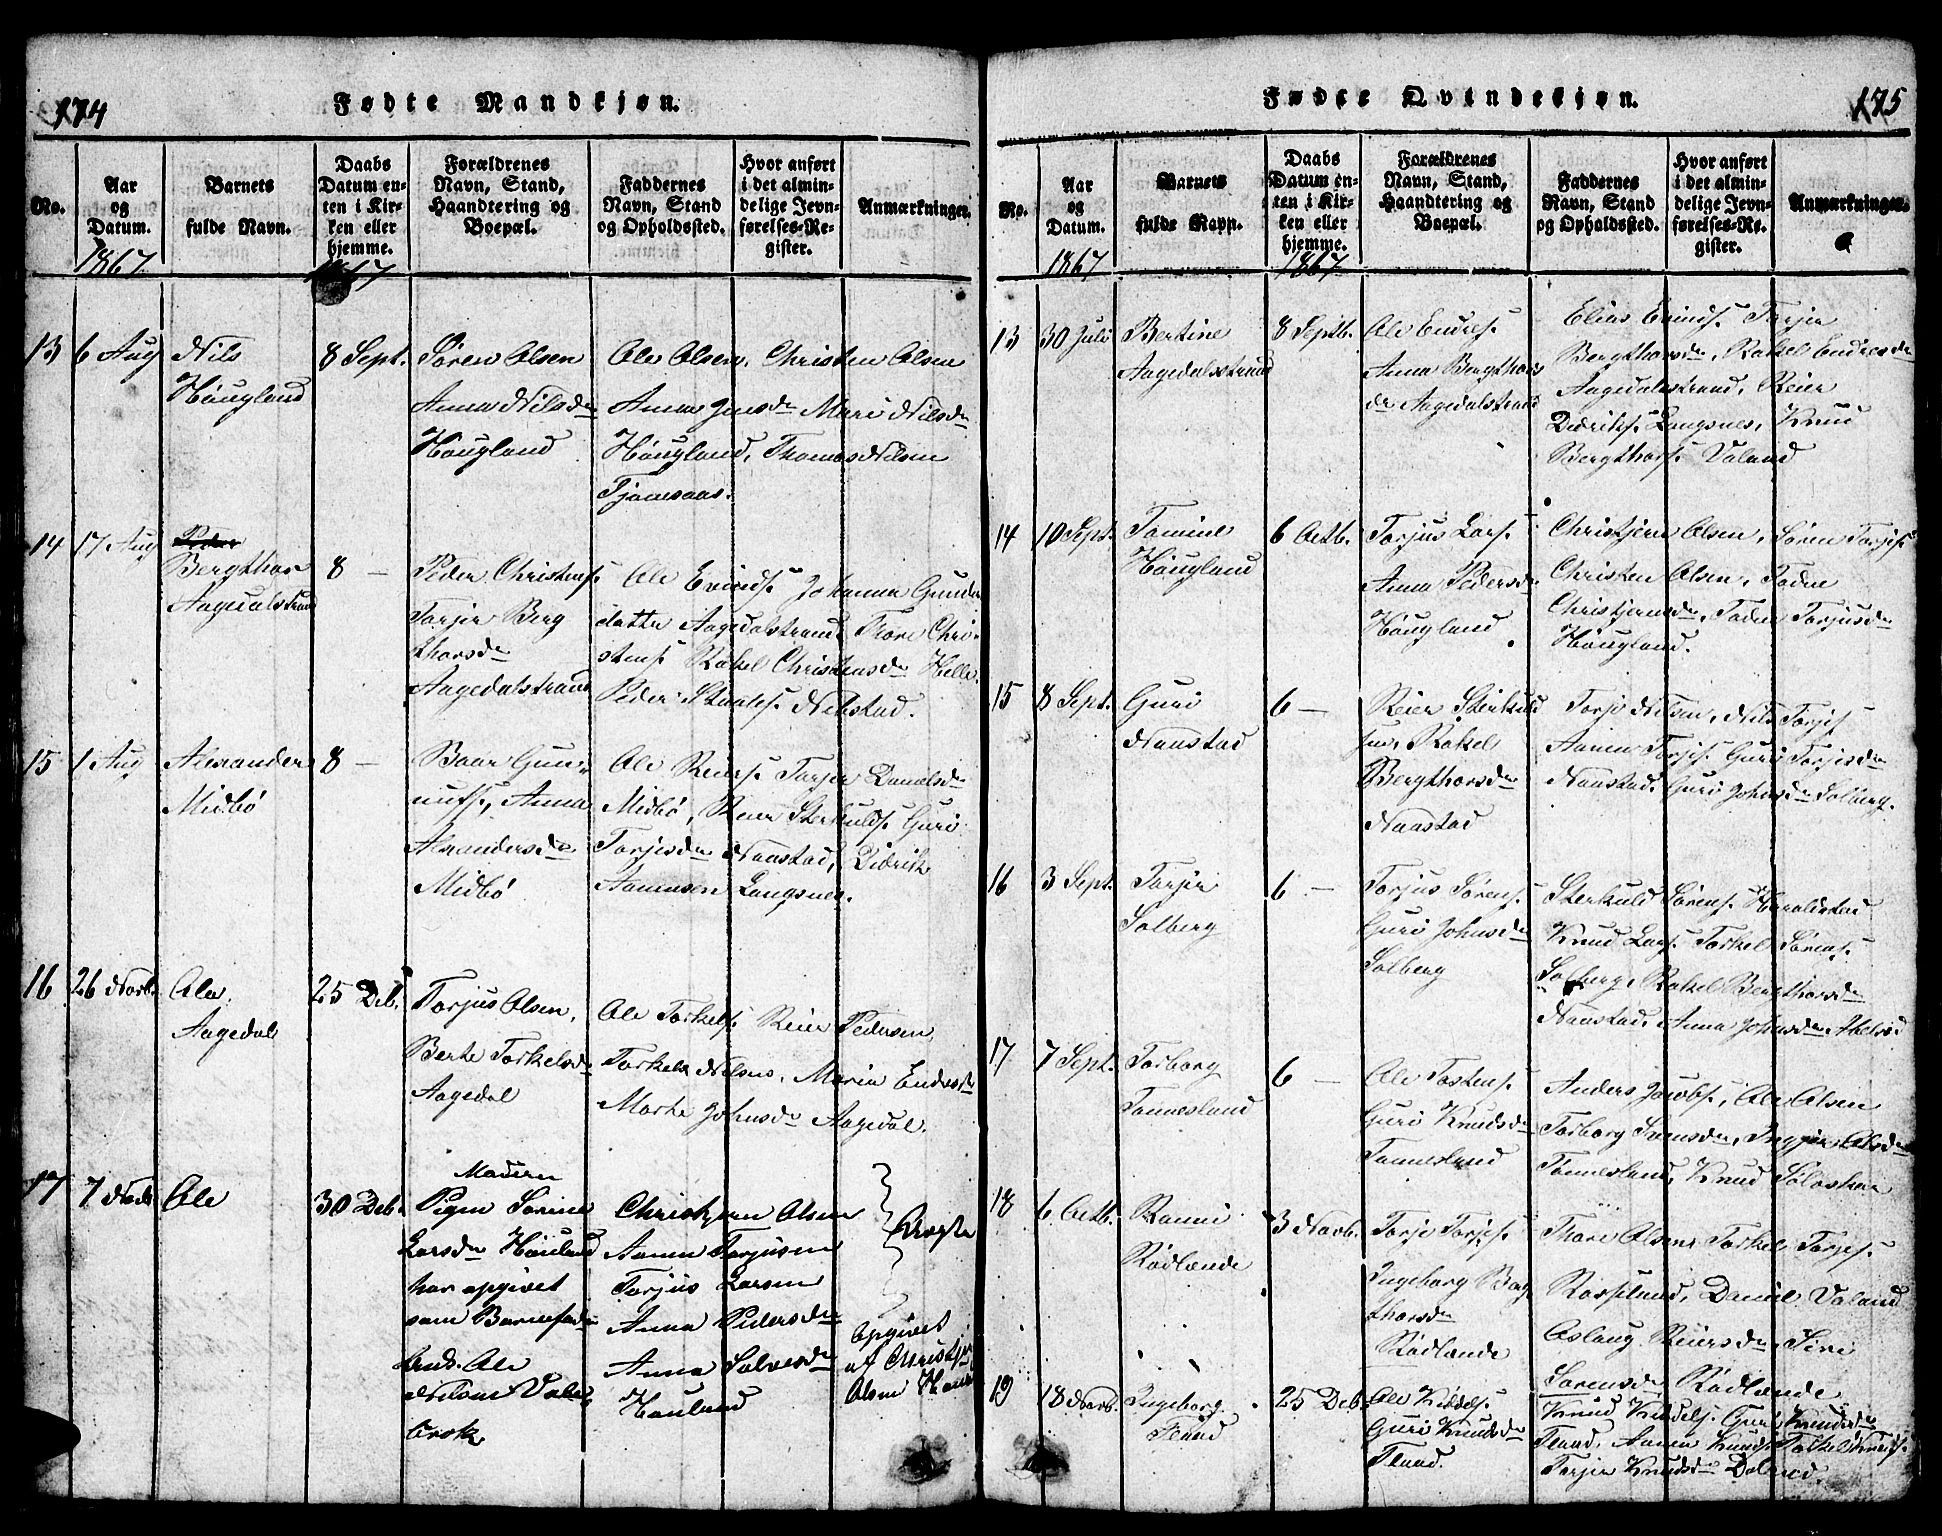 174
Fødte Mandkjøn.
No.
Aar
og
Datum.
1867
Barnets
fulde Navn.
Daabs
Datum en-
ten i Kir-
ken eller
hjemme.
1867
Forældrenes
Navn, Stand,
Haandtering og
Boepæl.
Faddernes
Navn, Stand
og Opholdssted.
Hvor anført
i det almin-
delige Jevn-
førelses-Re-
gister.
Anmærkninger.
13 6 Aug Nils
Høugland
8 Sept.
Søren Olsen
Anna Nilsdr
Høugland
Ole Olsen, Christen Olsen
Anna Jensdr Mari Nilsdr
Høugland, Thomas Nilsen
Tjomsaas.
14 17 Aug Peder
Bergthor
Aagedalstrand
8 —
Peder Christens.
Torjer Berg
thorsdr
Aagedalstrand
Ole Evinds. Johanna Gunder
datter Aagedalstrand, Thore Chri-
stens. Rakel Christensdr Helle.
Peder Staales. Nilstad.
15 1 Aug Alexander
Midbø
8 —
Baar Gun-
nufs., Anna
Alexandersdr
Midbø
Ole Reiers. Torjer Danielsdr
Midbø, Reier Sterkulds. Guri
Torjesdr Naastad, Didrik
Aamunsen Langsnes.
16 26 Novb. Ole
Aagedal
25 Deb.
Torjus Olsen,
Berte Torkelsdr
Aagedal
Ole Torkels. Reier Pedersen,
Torkel Nilsens, Maria Endresdr
Marte Johnsdr Aagedal.
17 7 Novb Ole
30 Deb.
Moderen
Pigen Sørine
Larsdr Høuland
har opgivet
som Barnefader
Ungk. Ole
Nilsen Vale
brok
Christjern Olsen
Aanen Torjusen
Torjus Larsen
Anna Pedersdr
Anna Salvesdr
Høuland
Uægte
Opgivet
af Christjern
Olsen Høuland
175
Fødte Qvindekjøn.
No.
Aar
og
Datum.
1867
Barnets
fulde Navn.
Daabs
Datum en-
ten i Kir-
ken eller
hjemme.
1867
Forældrenes
Navn, Stand,
Haandtering og
Boepæl.
Faddernes
Navn, Stand
og Opholdssted.
Hvor anført
i det almin-
delige Jevn-
førelses-Re-
gister.
Anmærkninger.
13 30 Juli Bertine
Aagedalstrand
8 Septb.
Ole Endres.
Anna Bergthors
dr Aagedalstrand
Elias Evinds. Torjer
Bergthorsdr, Rakel Endresdr
Aagedalstrand, Reier
Didriks. Langsnes, Knud
Bergthors. Valand
14 10 Sept. Tomine
Høugland
6 Octb.
Torjus Lars.
Anna Pedersdr
Høugland
Christjern Olsen, Søren Torjes.
Christen Olsen, Todne
Christjernsdr, Todne Torjusdr
Høugland.
15 8 Sept. Guri
Naastad
6 —
Reier Sterkuld
sen, Rakel
Bergthorsdr
Naastad
Torje Nilsen, Nils Torjes.
Aanen Torjes. Guri Torjesdr
Naastad. Guri Johnsdr Solberg.
16 3 Sept. Torjer
Solberg
6 —
Torjus Sørens.
Guri Johnsdr
Solberg
Sterkuld Sørens. Haraldstad
Knud Lars. Torkel Sørens.
Solberg, Rakel Bergthorsdr
Naastad, Anna Johnsdr
17 7 Sept. Torborg
Tonnesland
6 —
Ole Tostens.
Guri Knudsdr
Tonnesland
Anders Jacobs., Ole Olsen
Torborg Svensdr, Ingjer Olsdr
Tonnesland, Knud
18 6 Octb. Ronni
Rødlande
3 Novb.
Torje Torjes.
Ingeborg Berg
thorsdr
Rødlande
Thore Olsens Torkel Torjes.
Rosseland, Daniel Valand
Aslaug Reiersdr, Siri
Sørensdr Rødlande
19 18 Novb. Ingeborg
Flaad
25 Deb.
Ole Kiddels.
Guri Knudsdr
Flaad.
Knud Kiddels. Guri Knudsdr
Flaad, Aanen Knuds. Torkel Knuds.
Torjer Knudsdr Daland.